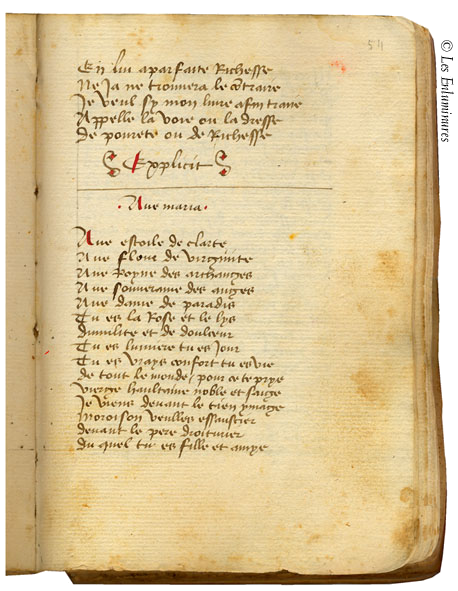 54
En lui a parfaite Richesse
Ne Ja ne trouvera le contraire
Je veul sy mon livre afin traire
Appelle la voie ou la dresse
De povrete ou de Richesse
Explicit
Ave maria
Ave estoile de clarte
Ave flour de virginite
Ave Royne des archanges
Ave souveraine des anges
Ave dame de paradis
Tu es la Rose et le lys
Dumilite et de doulceur
Tu es lumiere tu es Jour
Tu es vrays confort tu es vie
de tout le monde / pour ce te prye
vierge haultaine noble et saige
Je viens devant le tien ymage
Moroison veulles essaulcier
devant le pere droiturier
du quel tu es fille et amye
© Les Enluminures